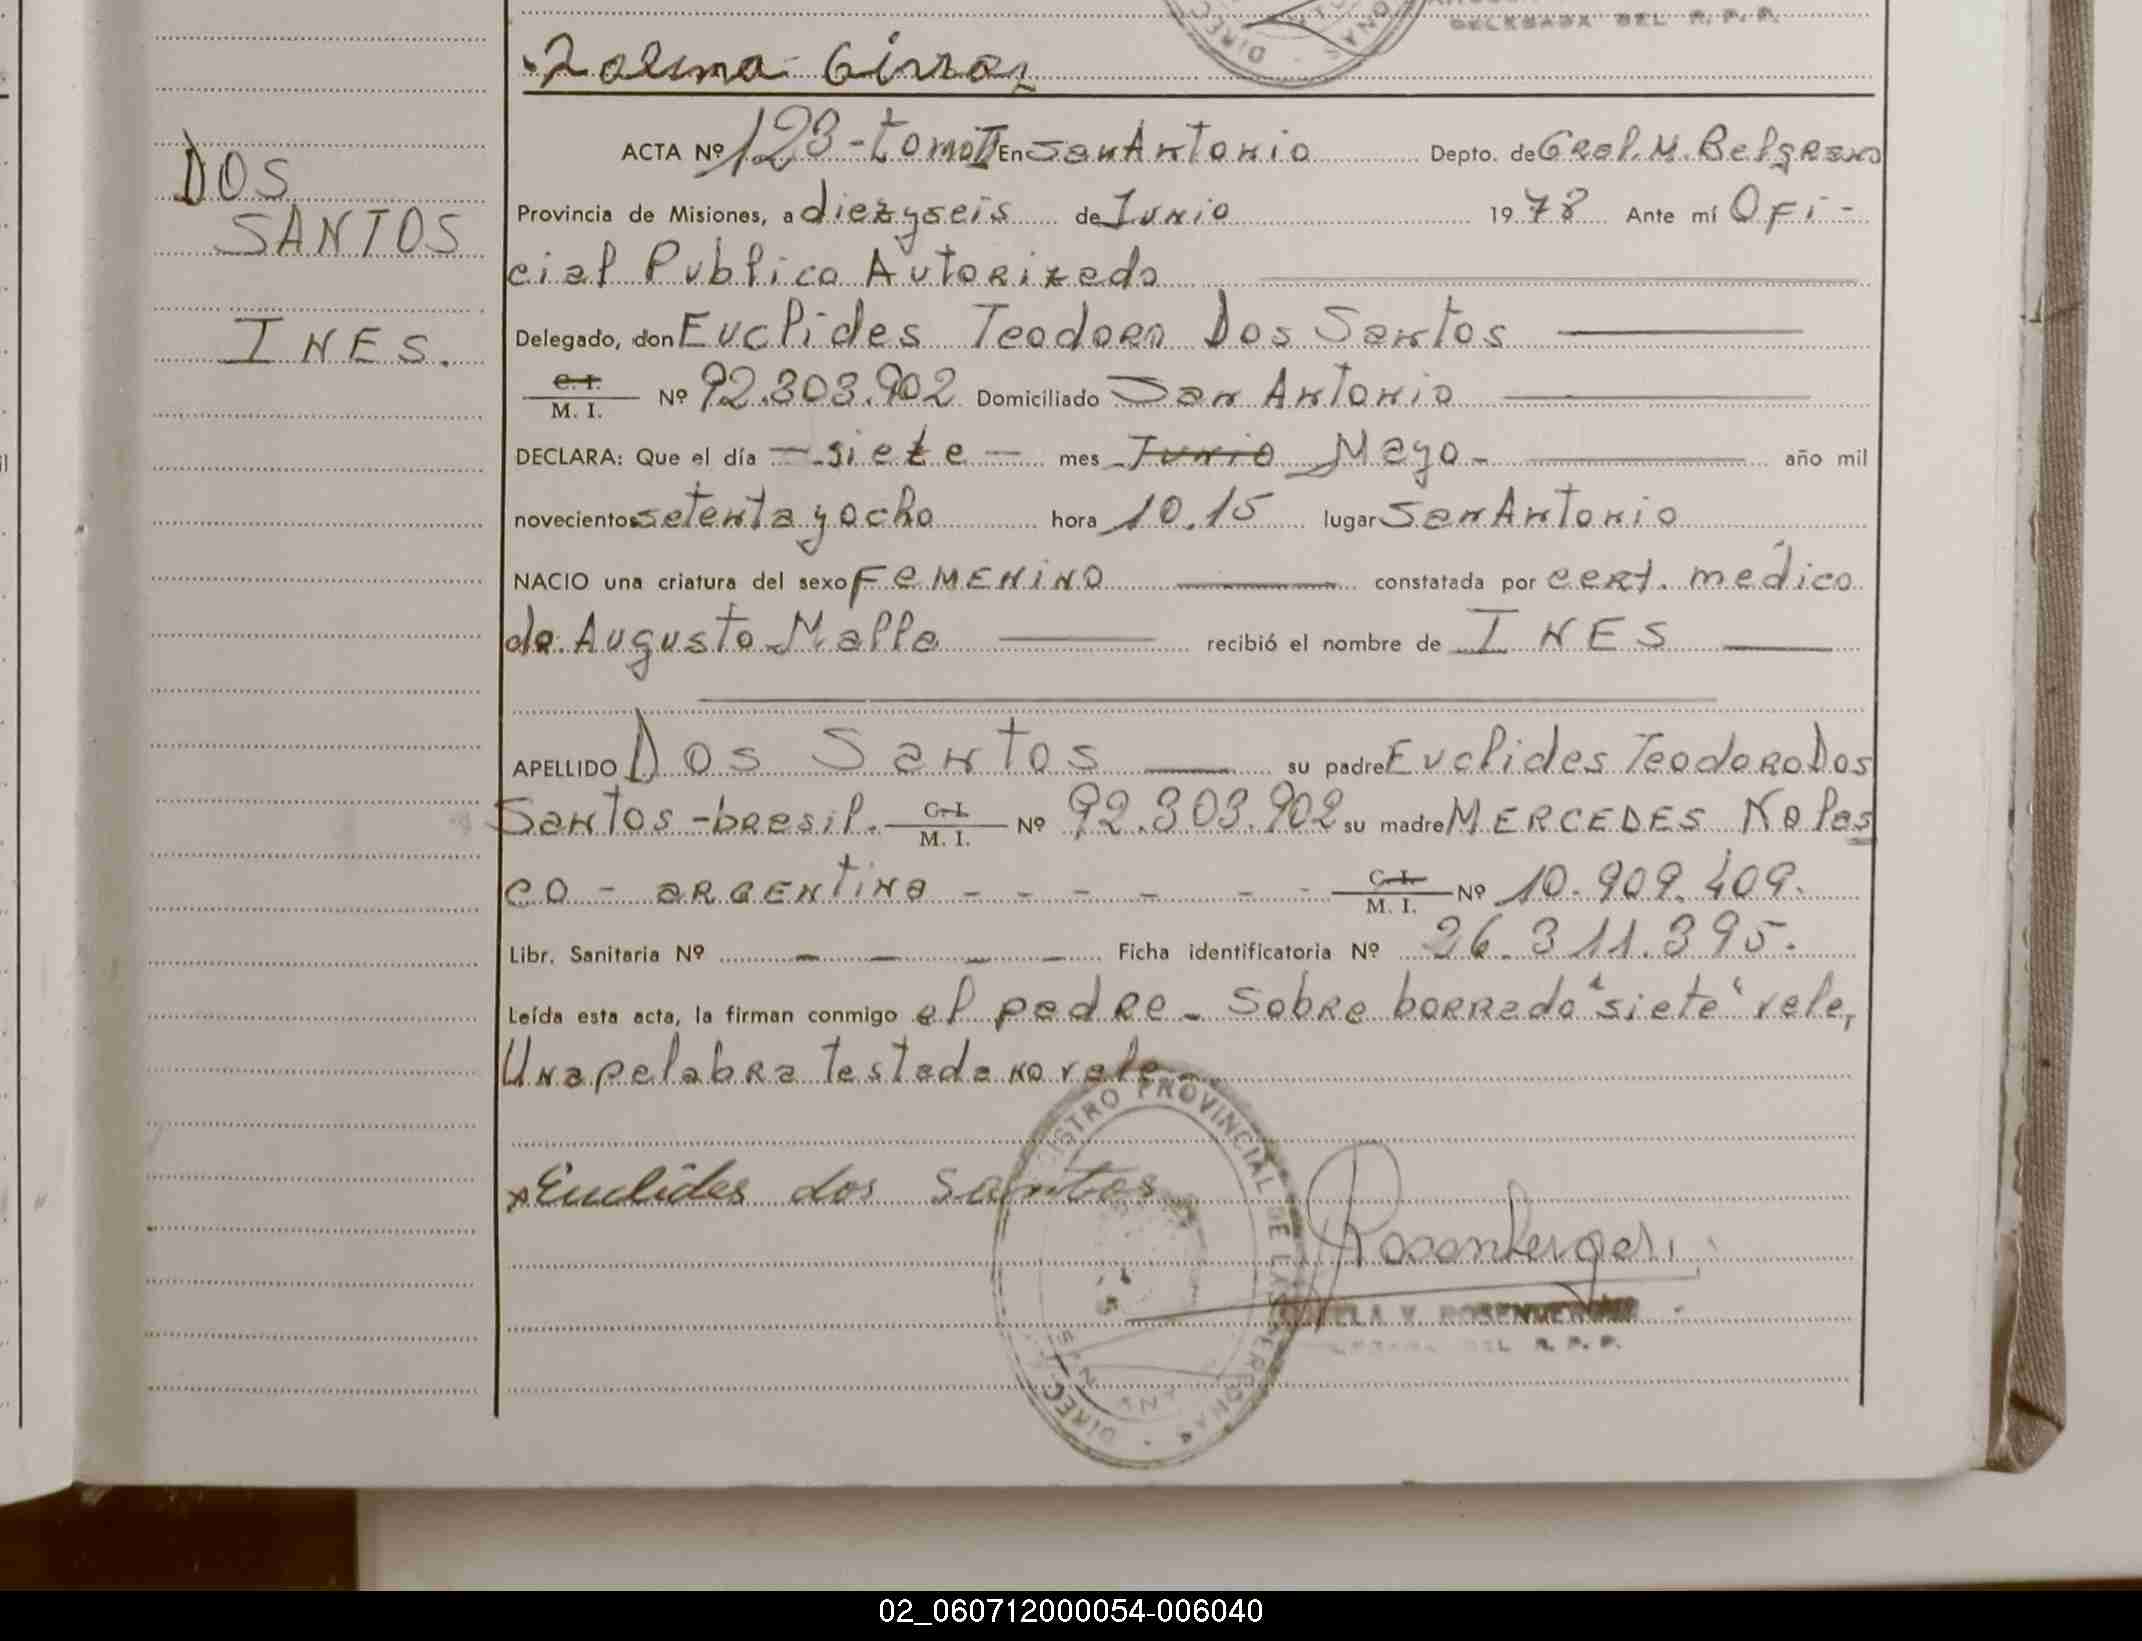 DELEGADA DEL R.P.P.
ACTA Nº 123 - tomo II En San Antonio Depto. de Gral. M. Belgrano
DOS
SANTOS
INES.
Provincia de Misiones, a diez y seis de Junio 1978 Ante mí Ofi-
cial Publico Autorizado
Delegado, don Euclides Teodoro Dos Santos
C. I.
M. I. Nº 92.303.902 Domiciliado San Antonio
DECLARA: Que el día - siete - mes Junio Mayo - año mil
novecientos setenta y ocho hora 10.15 lugar San Antonio
NACIO una criatura del sexo FEMENINO constatada por cert. médico
de Augusto Malla recibió el nombre de INES
APELLIDO Dos Santos su padre Euclides Teodoro Dos
Santos - brasil. C. I. M. I. Nº 92.303.902 su madre MERCEDES Nolas
co - argentina - - - - - - C. I. M. I. Nº 10.909.409.
Libr. Sanitaria Nº - - - - Ficha identificatoria Nº 26.311.395.
Leída esta acta, la firman conmigo el padre - Sobre borrado "siete" vale,
Una palabra testada no vale -
Euclides dos Santos
REGISTRO PROVINCIAL DE LAS PERSONAS
Rosenberger
V. ROSENBERGER
DEL R.P.P.
02_060712000054-006040